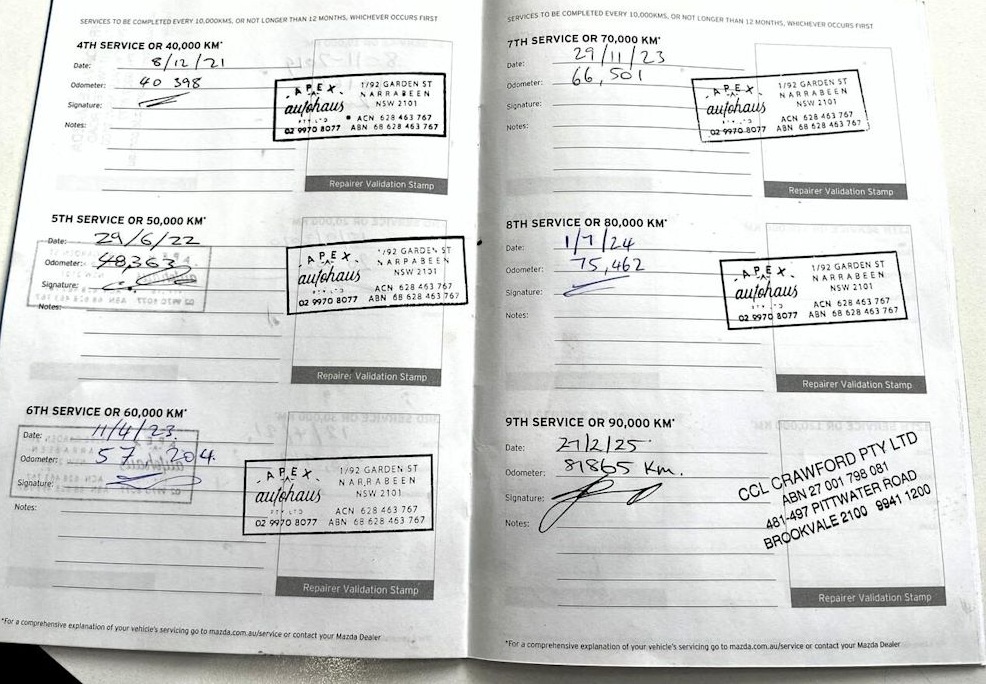 SERVICES TO BE COMPLETED EVERY 10,000KMS, OR NOT LONGER THAN 12 MONTHS, WHICHEVER OCCURS FIRST
4TH SERVICE OR 40,000 KM*
Date: 8/12/21
Odometer: 40 398
Signature:
Notes:
APEX
autohaus
PTY LTD
02 9970 8077
1/92 GARDEN ST
NARRABEEN
NSW 2101
ACN 628 463 767
ABN 68 628 463 767
Repairer Validation Stamp
5TH SERVICE OR 50,000 KM*
Date: 29/6/22
Odometer: 48,363
Signature:
Notes:
APEX
autohaus
02 9970 8077
1/92 GARDEN ST
NARRABEEN
NSW 2101
ACN 628 463 767
ABN 68 628 463 767
Repairer Validation Stamp
6TH SERVICE OR 60,000 KM*
Date: 11/4/23.
Odometer: 57 204.
Signature:
Notes:
APEX
autohaus
PTY LTD
02 9970 8077
1/92 GARDEN ST
NARRABEEN
NSW 2101
ACN 628 463 767
ABN 68 628 463 767
Repairer Validation Stamp
*For a comprehensive explanation of your vehicle's servicing go to mazda.com.au/service or contact your Mazda Dealer
SERVICES TO BE COMPLETED EVERY 10,000KMS, OR NOT LONGER THAN 12 MONTHS, WHICHEVER OCCURS FIRST
7TH SERVICE OR 70,000 KM*
Date: 29/11/23
Odometer: 66,501
Signature:
Notes:
APEX
autohaus
PTY LTD
02 9970 8077
1/92 GARDEN ST
NARRABEEN
NSW 2101
ACN 628 463 767
ABN 68 628 463 767
Repairer Validation Stamp
8TH SERVICE OR 80,000 KM*
Date: 1/7/24
Odometer: 75,462
Signature:
Notes:
APEX
autohaus
02 9970 8077
1/92 GARDEN ST
NARRABEEN
NSW 2101
ACN 628 463 767
ABN 68 628 463 767
Repairer Validation Stamp
9TH SERVICE OR 90,000 KM*
Date: 27/2/25
Odometer: 81865 Km.
Signature:
Notes:
CCL CRAWFORD PTY LTD
ABN 27 001 798 081
481-497 PITTWATER ROAD
BROOKVALE 2100 9941 1200
Repairer Validation Stamp
*For a comprehensive explanation of your vehicle's servicing go to mazda.com.au/service or contact your Mazda Dealer